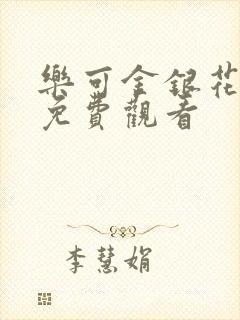 樂可金銀花
免費觀看
李慧娟